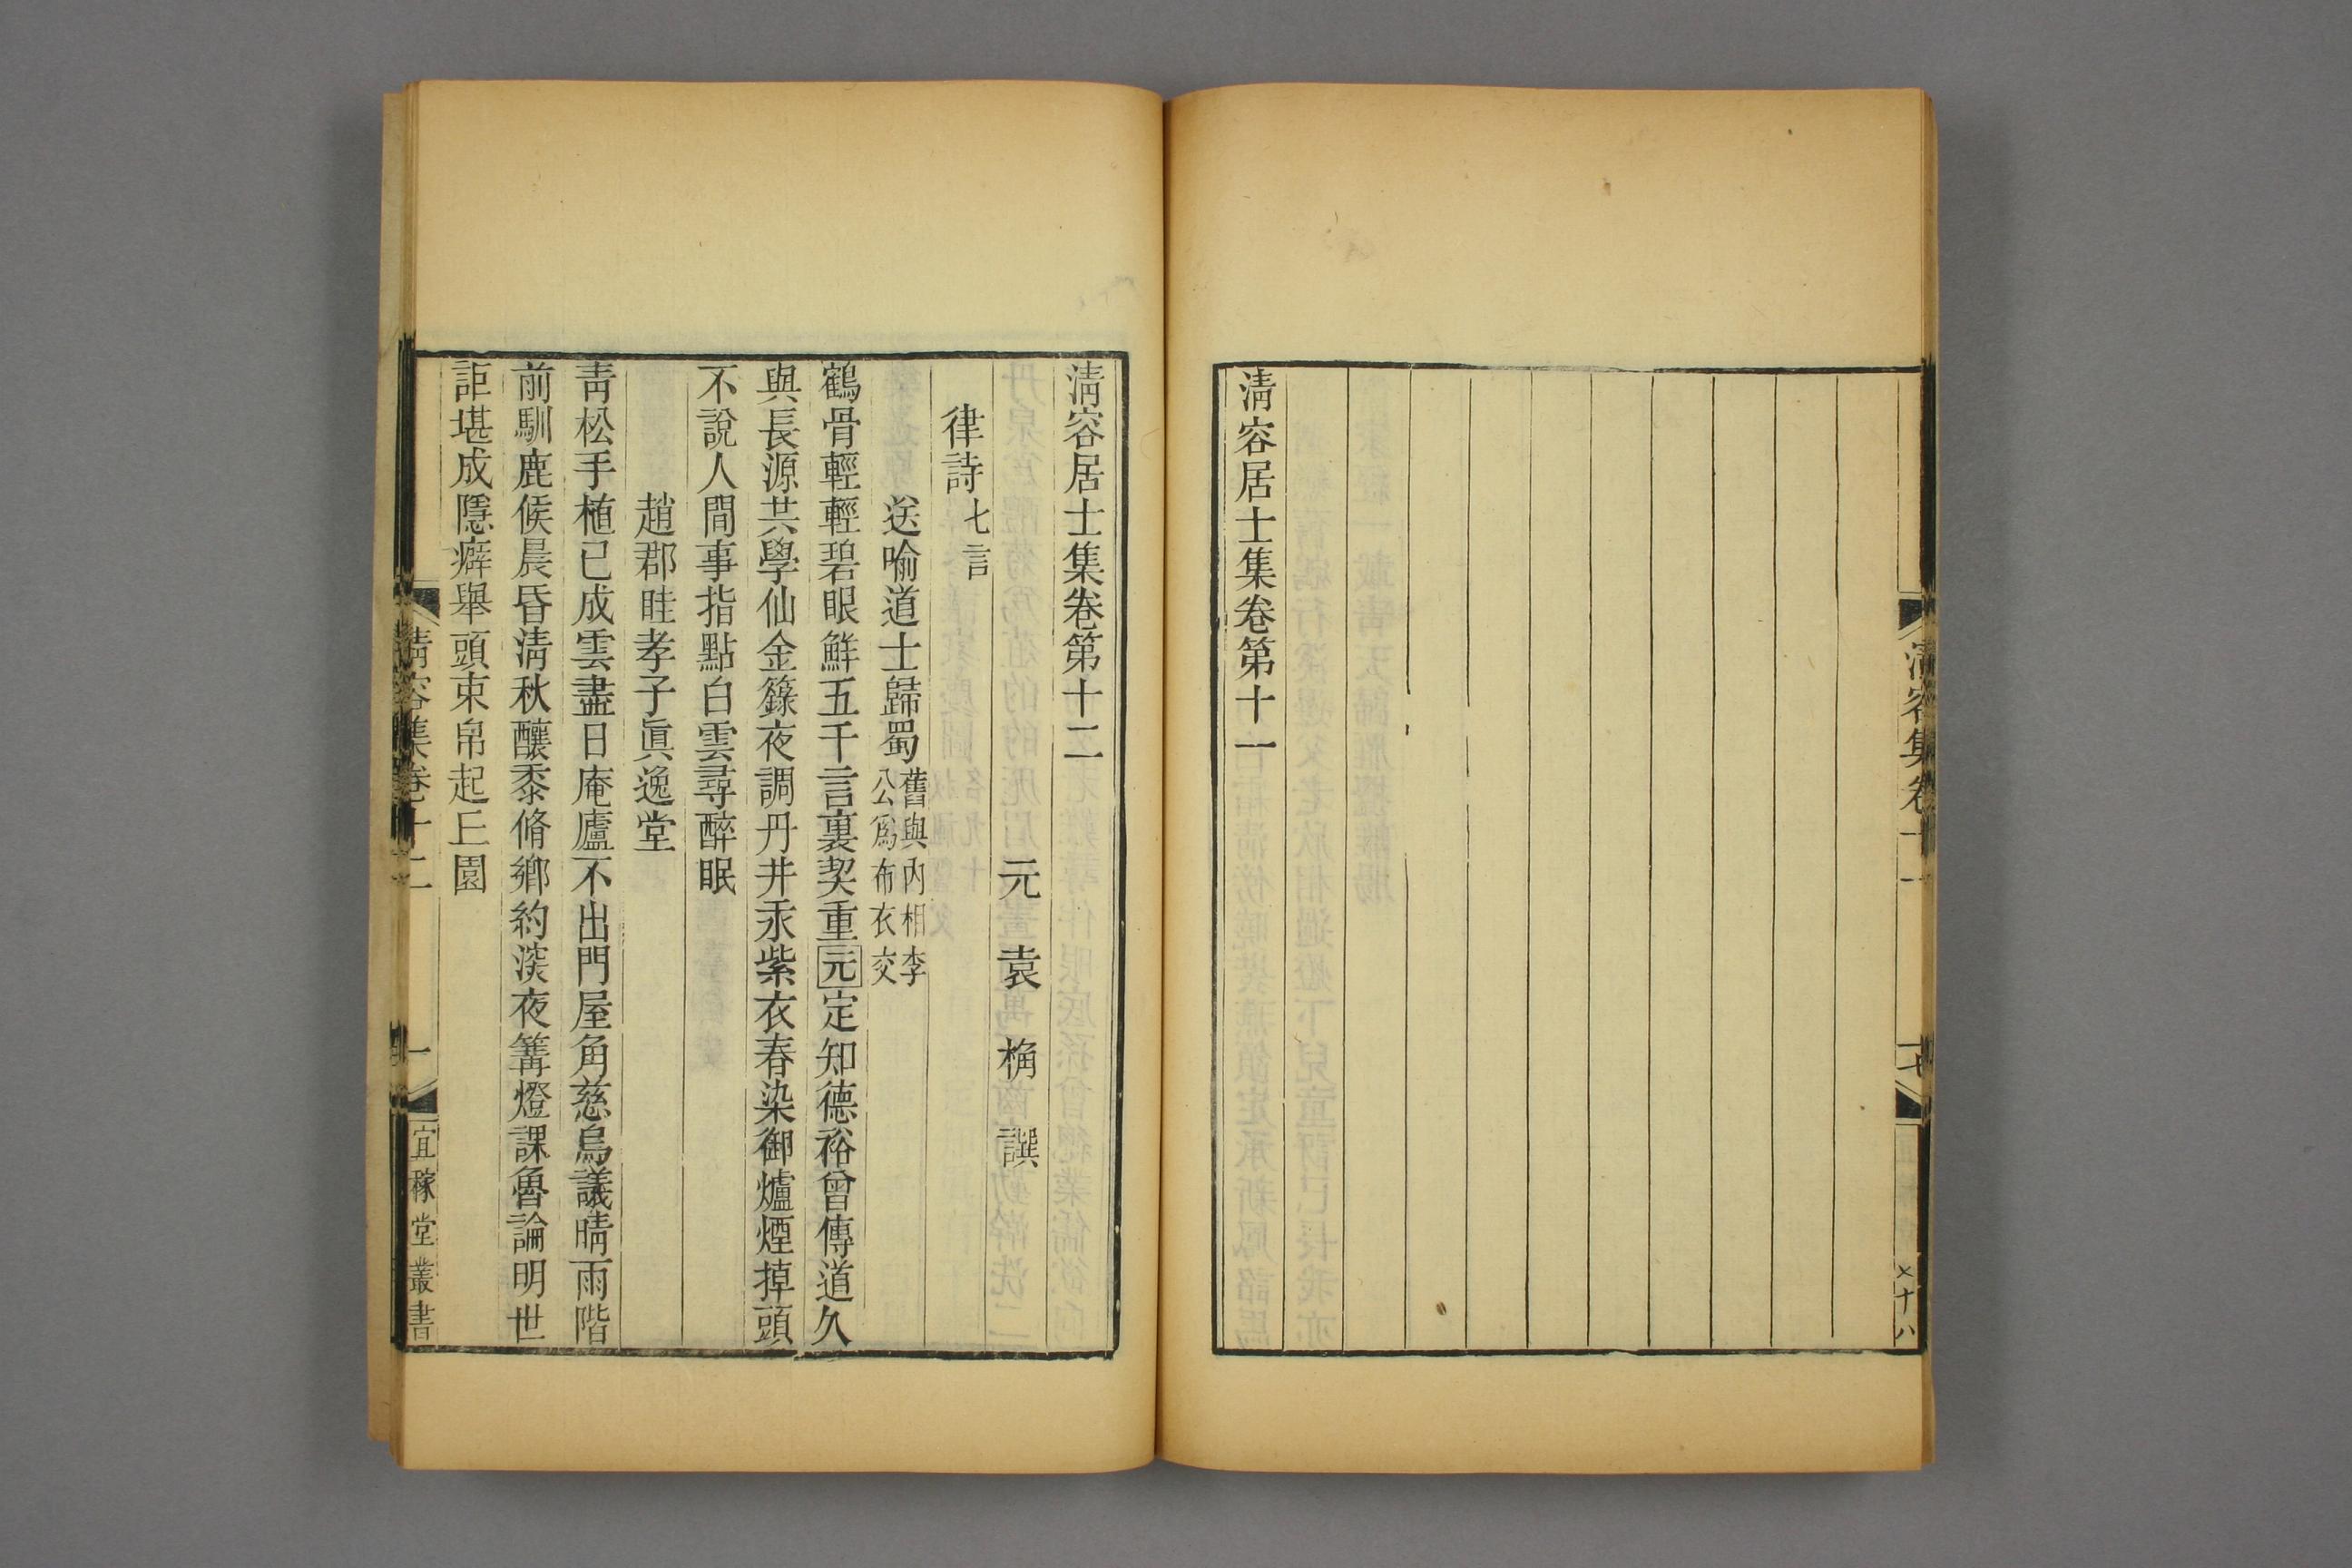 清容居士集卷第十一
清容居士集卷第十二
元袁桷譔
律詩七言
送喻道士歸蜀舊與內相李公爲布衣交
鶴骨輕輕碧眼鮮五千言裏契重元定知德裕曾傳道久
與長源共學仙金籙夜調丹井汞紫衣春染御爐煙掉頭
不說人間事指點白雲尋醉眠
趙郡眭孝子眞逸堂
靑松手植已成雲盡日庵廬不出門屋角慈烏議晴雨階
前馴鹿候晨昏淸秋釀黍脩鄉約淡夜篝燈課魯論明世
詎堪成隱癖舉頭束帛起丘園
清容集卷十二
一
宜稼堂叢書